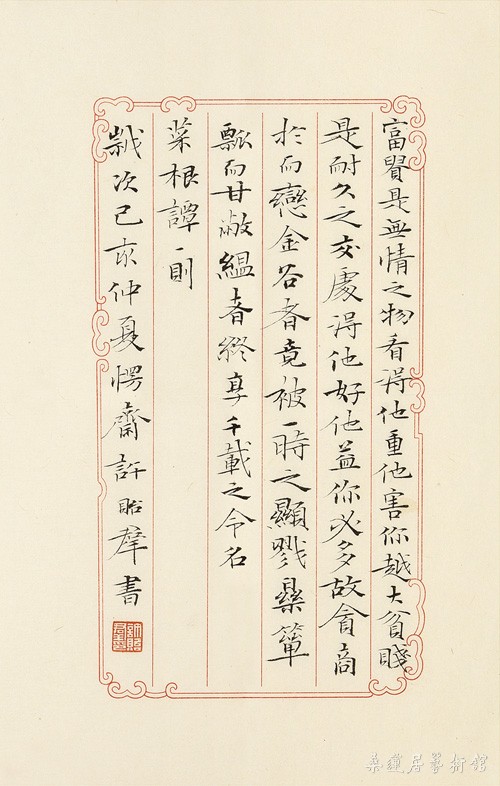 富貴是無情之物看得他重他害你越大貧賤
是耐久之交處得他好他益你必多故貪商
於而戀金谷者竟被一時之顯戮樂簞
瓢而甘敝縕者終享千載之令名
菜根譚一則
歲次己亥仲夏愕齋許羣書
桑蓮居藝術館